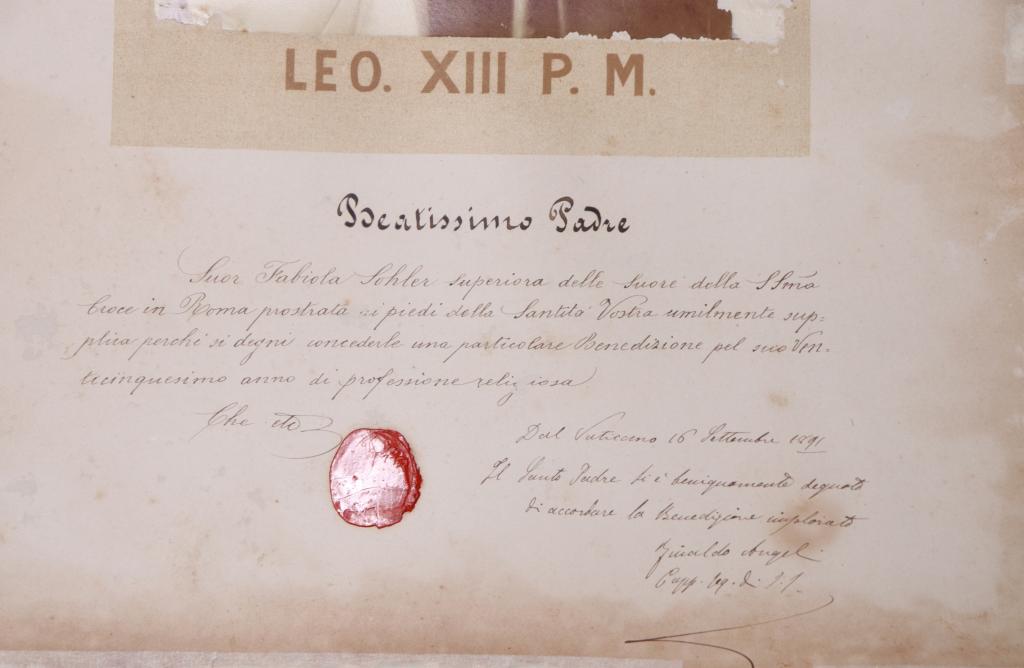 LEO. XIII P. M.
Beatissimo Padre
Suor Fabiola Sohler superiora delle suore della SSma
Croce in Roma prostrata ai piedi della Santità Vostra umilmente sup=
plica perchè si degni concederle una particolare Benedizione pel suo Ven=
ticinquesimo anno di professione religiosa
Che etc
Dal Vaticano 16 Settembre 1891
Il Santo Padre si è benignamente degnato
di accordare la Benedizione implorata
Rinaldo Angeli
Capp. Seg. di S. S.